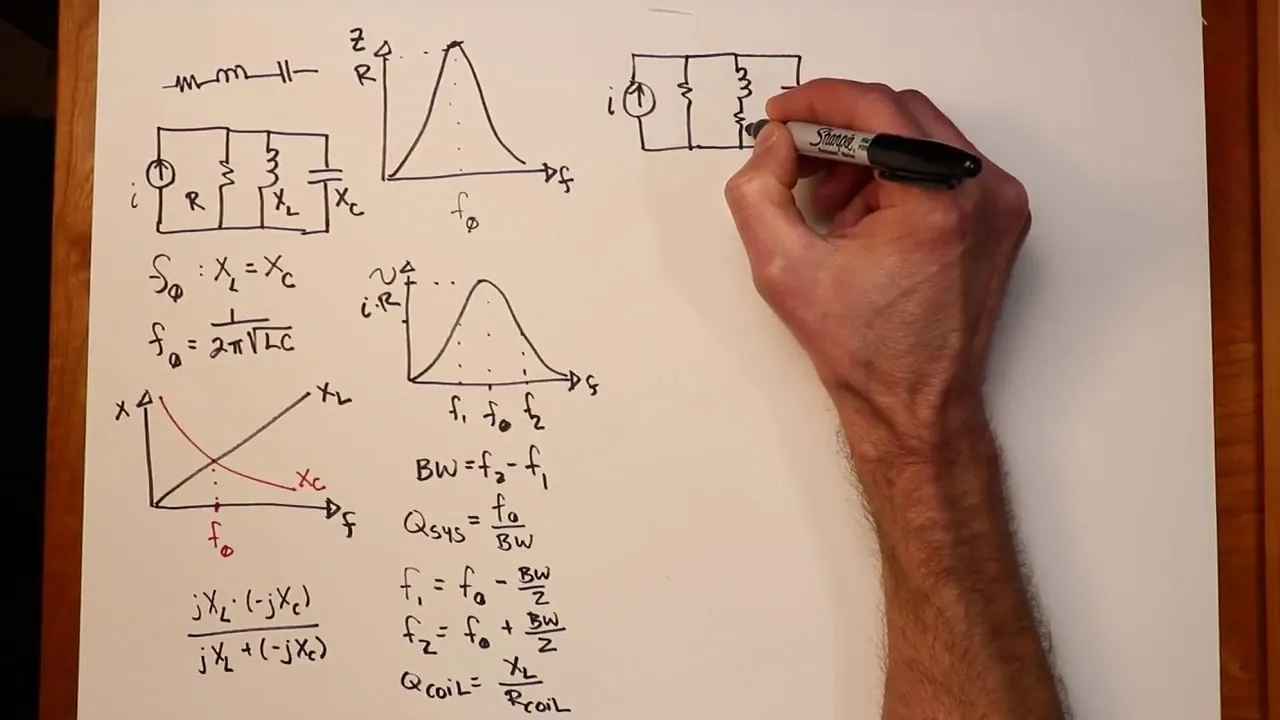 Z
R
f
f₀
i
R
X_L
X_C
f₀ : X_L = X_C
f₀ = 1 / 2π√LC
X
X_L
X_C
f
f₀
jX_L · (-jX_C) / jX_L + (-jX_C)
v
i·R
f
f₁ f₀ f₂
BW = f₂ - f₁
Q_SYS = f₀ / BW
f₁ = f₀ - BW/2
f₂ = f₀ + BW/2
Q_COIL = X_L / R_COIL
i
Sharpie